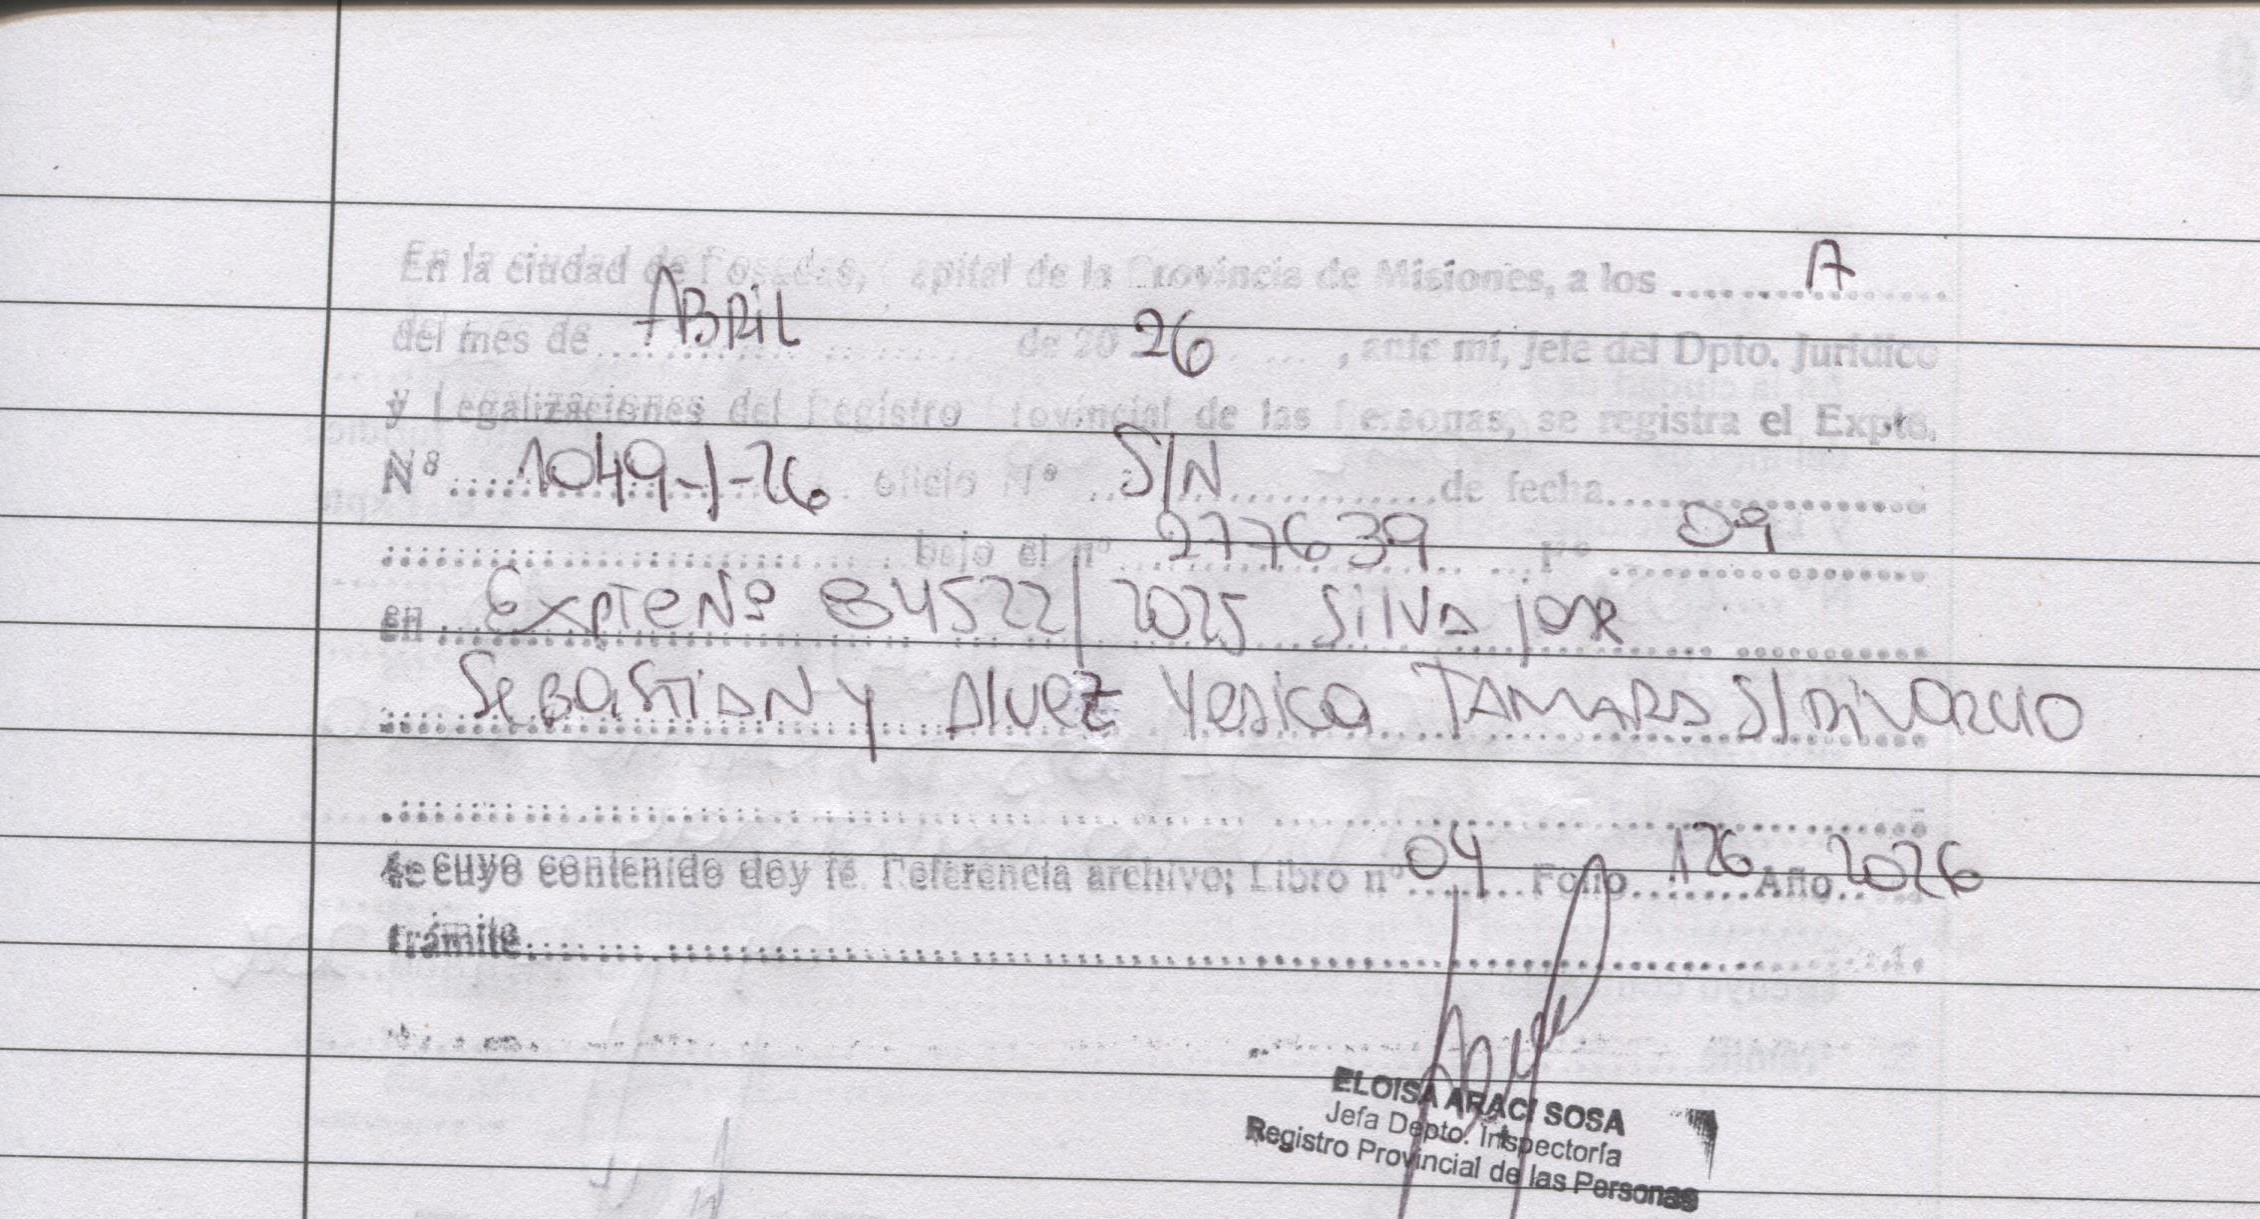 En la ciudad de Posadas, Capital de la Provincia de Misiones, a los ........ A
del mes de ..... ABRIL ..... de 20 26 ..... , ante mí, Jefe del Dpto. Jurídico
y Legalizaciones del Registro Provincial de las Personas, se registra el Expte.
Nº ..... 1049-J-26 ..... oficio Nº ..... S/N ..... de fecha ..........
..................... bajo el nº ..... 277639 ..... pº ..... 09
en ..... Expte Nº 84522/2025 Silva jose
Sebastian y Alvez Yesica TAMARA S/DiVORCIO
..........................................
de cuyo contenido doy fé. Referencia archivo; Libro nº 04 Folio 126 Año 2026
trámite..........................................
ELOISA ARACI SOSA
Jefa Depto. Inspectoría
Registro Provincial de las Personas